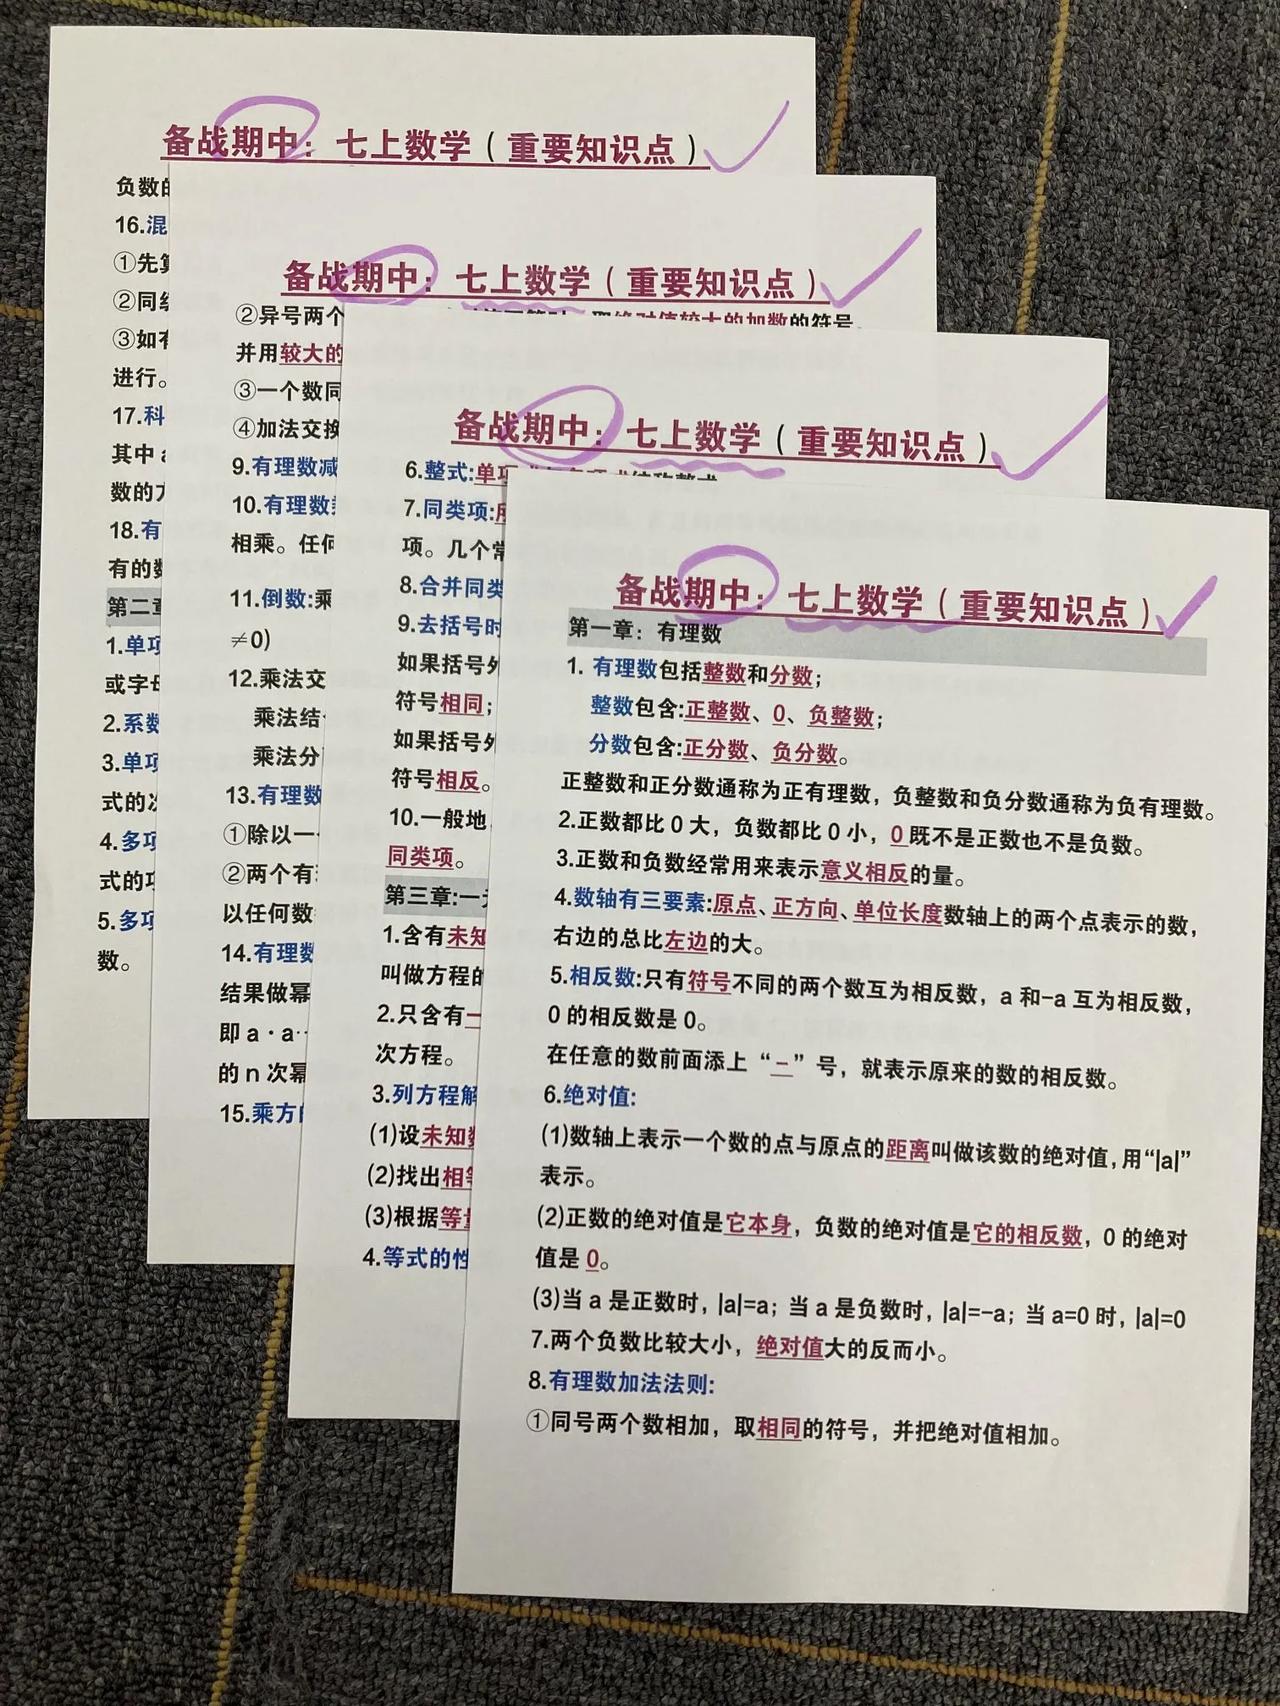 备战期中：七上数学（重要知识点）
负数的
16.混
①先算
②同级
③如有
进行。
17.科
其中 a
数的方
18.有
有的数
第二章
1.单项
或字母
2.系数
3.单项
式的次
4.多项
式的项
5.多项
数。
备战期中：七上数学（重要知识点）
②异号两个
取绝对值较大的加数的符号，
并用较大的
③一个数同
④加法交换
9.有理数减
10.有理数
相乘。任何
11.倒数:乘
≠0)
12.乘法交
乘法结
乘法分
13.有理数
①除以一
②两个有
以任何数
14.有理数
结果做幂
即 a·a…
的 n 次幂
15.乘方的
备战期中：七上数学（重要知识点）
6.整式:单项式与多项式统称整式
7.同类项:所
项。几个常
8.合并同类
9.去括号时
如果括号外
符号相同；
如果括号外
符号相反。
10.一般地
同类项。
第三章:一元
1.含有未知
叫做方程的
2.只含有一
次方程。
3.列方程解
(1)设未知数
(2)找出相等
(3)根据等量
4.等式的性
备战期中：七上数学（重要知识点）
第一章：有理数
1. 有理数包括整数和分数；
整数包含:正整数、0、负整数；
分数包含:正分数、负分数。
正整数和正分数通称为正有理数，负整数和负分数通称为负有理数。
2.正数都比 0 大，负数都比 0 小，0 既不是正数也不是负数。
3.正数和负数经常用来表示意义相反的量。
4.数轴有三要素:原点、正方向、单位长度数轴上的两个点表示的数，
右边的总比左边的大。
5.相反数:只有符号不同的两个数互为相反数，a 和-a 互为相反数，
0 的相反数是 0。
在任意的数前面添上“－”号，就表示原来的数的相反数。
6.绝对值:
(1)数轴上表示一个数的点与原点的距离叫做该数的绝对值,用“|a|”
表示。
(2)正数的绝对值是它本身，负数的绝对值是它的相反数，0 的绝对
值是 0。
(3)当 a 是正数时，|a|=a；当 a 是负数时，|a|=-a；当 a=0 时，|a|=0
7.两个负数比较大小，绝对值大的反而小。
8.有理数加法法则:
①同号两个数相加，取相同的符号，并把绝对值相加。